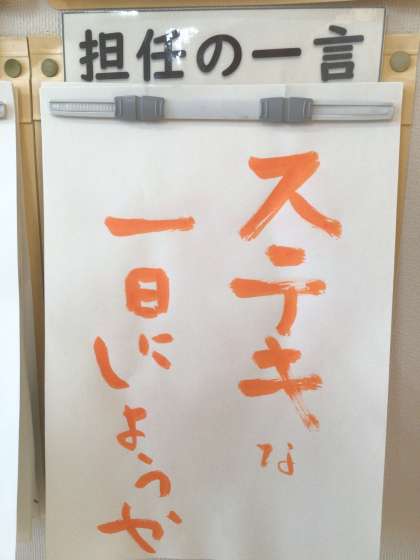 担任の一言
ステキな
一日にしようか